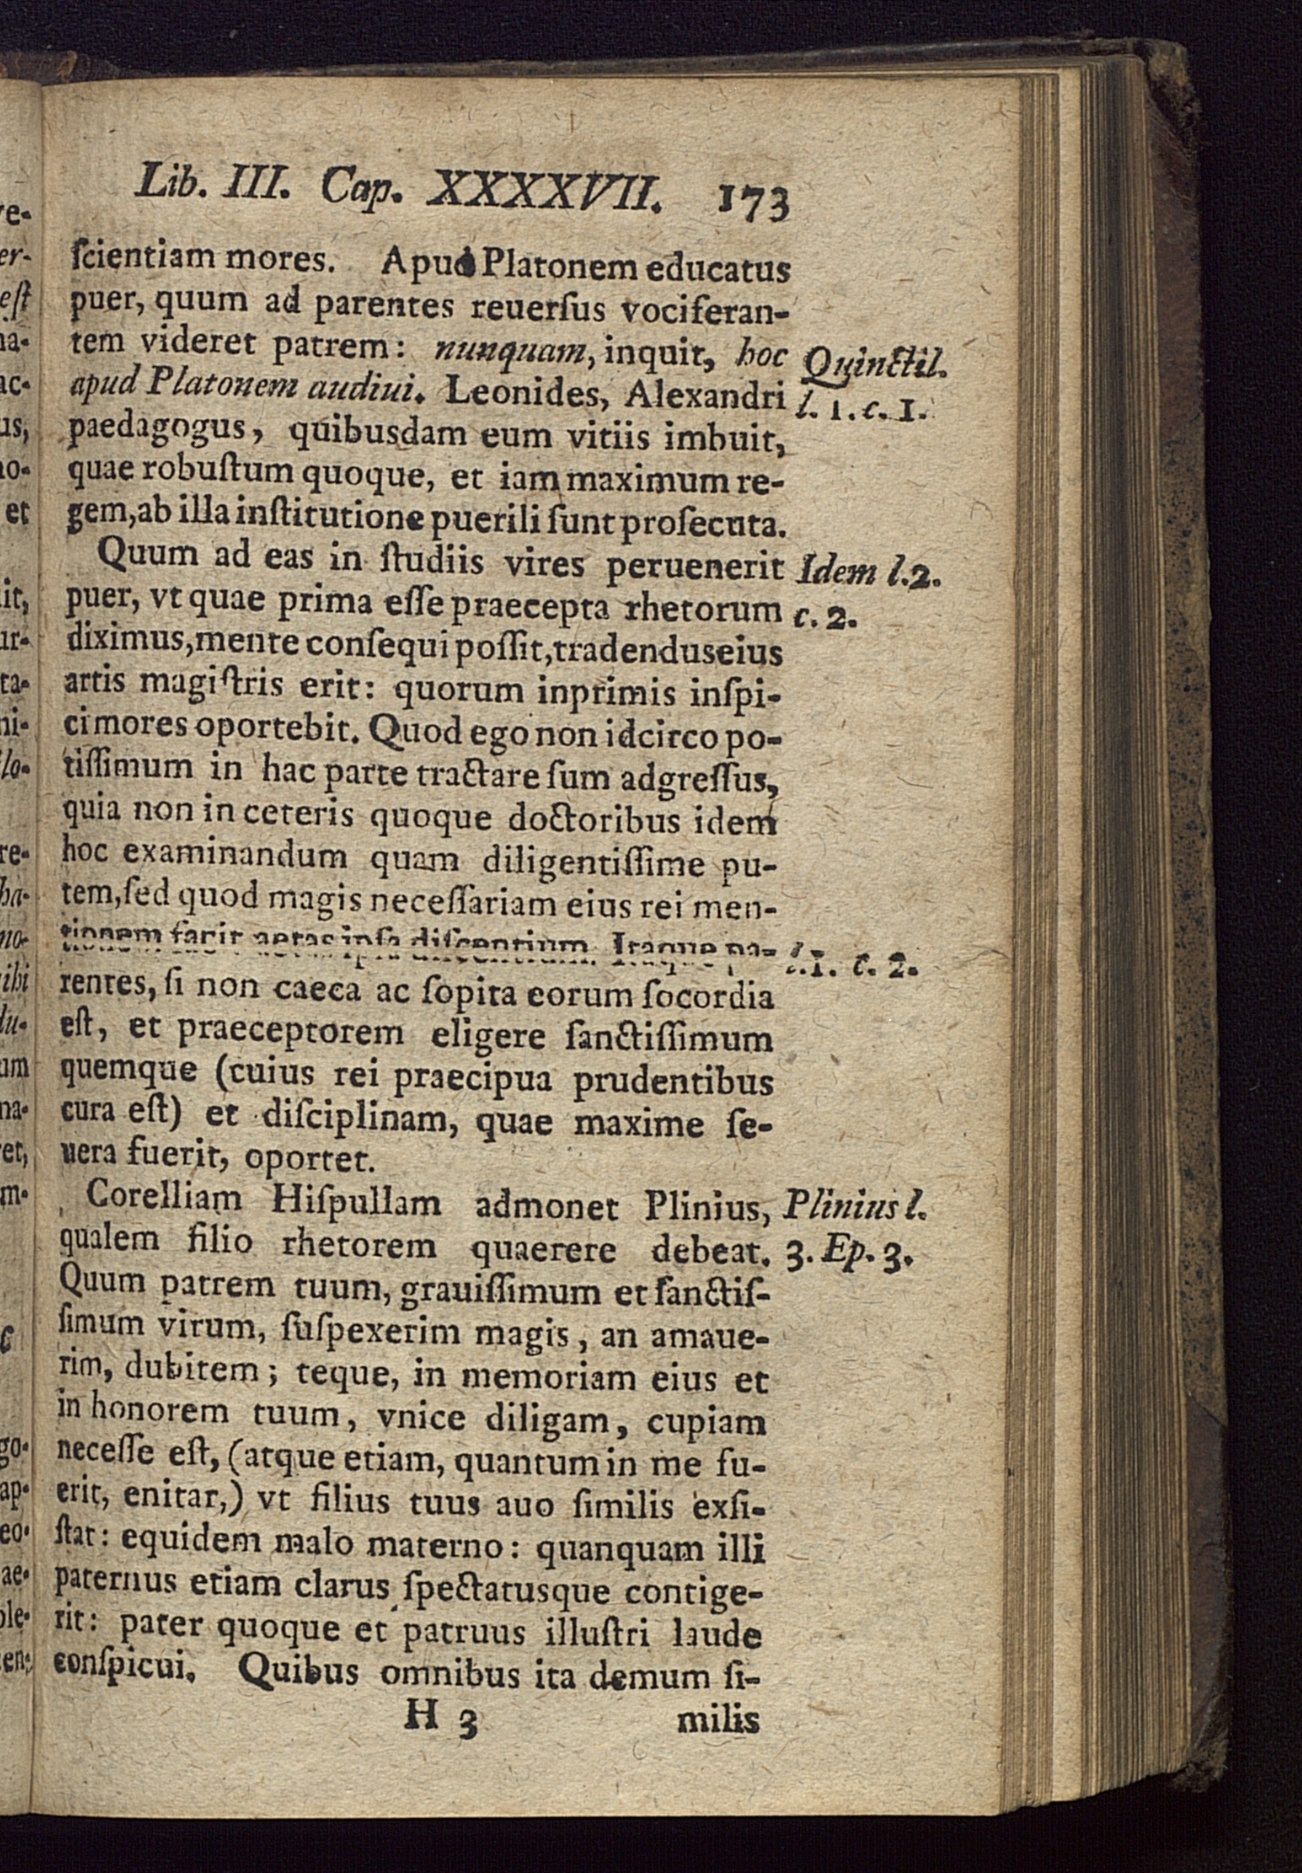 Lib. III. Cap. XXXXVII. 173
ſcientiam mores. Apud Platonem educatus
puer, quum ad parentes reuerſus vociferan-
tem videret patrem: nunquam, inquit, hoc
Quinctil.
apud Platonem audiui. Leonides, Alexandri
l. 1. c. 1.
paedagogus, quibusdam eum vitiis imbuit,
quae robuſtum quoque, et iam maximum re-
gem, ab illa inſtitutione puerili ſunt proſecuta.
Quum ad eas in ſtudiis vires peruenerit
Idem l. 2.
puer, vt quae prima eſſe praecepta rhetorum
c. 2.
diximus, mente conſequi poſſit, tradendus eius
artis magiſtris erit: quorum inprimis inſpi-
ci mores oportebit. Quod ego non idcirco po-
tiſſimum in hac parte tractare ſum adgreſſus,
quia non in ceteris quoque doctoribus idem
hoc examinandum quam diligentiſſime pu-
tem, ſed quod magis neceſſariam eius rei men-
tionem facit aetas ipſa diſcentium. Itaque pa-
l. 1. c. 2.
rentes, ſi non caeca ac ſopita eorum ſocordia
eſt, et praeceptorem eligere ſanctiſſimum
quemque (cuius rei praecipua prudentibus
cura eſt) et diſciplinam, quae maxime ſe-
uera fuerit, oportet.
Corelliam Hiſpullam admonet Plinius,
Plinius l.
qualem filio rhetorem quaerere debeat.
3. Ep. 3.
Quum patrem tuum, grauiſſimum et ſanctiſ-
ſimum virum, ſuſpexerim magis, an amaue-
rim, dubitem; teque, in memoriam eius et
in honorem tuum, vnice diligam, cupiam
neceſſe eſt, (atque etiam, quantum in me fu-
erit, enitar,) vt filius tuus auo ſimilis exſi-
ſtat: equidem malo materno: quanquam illi
paternus etiam clarus ſpectatusque contige-
rit: pater quoque et patruus illuſtri laude
conſpicui. Quibus omnibus ita demum ſi-
H 3
milis